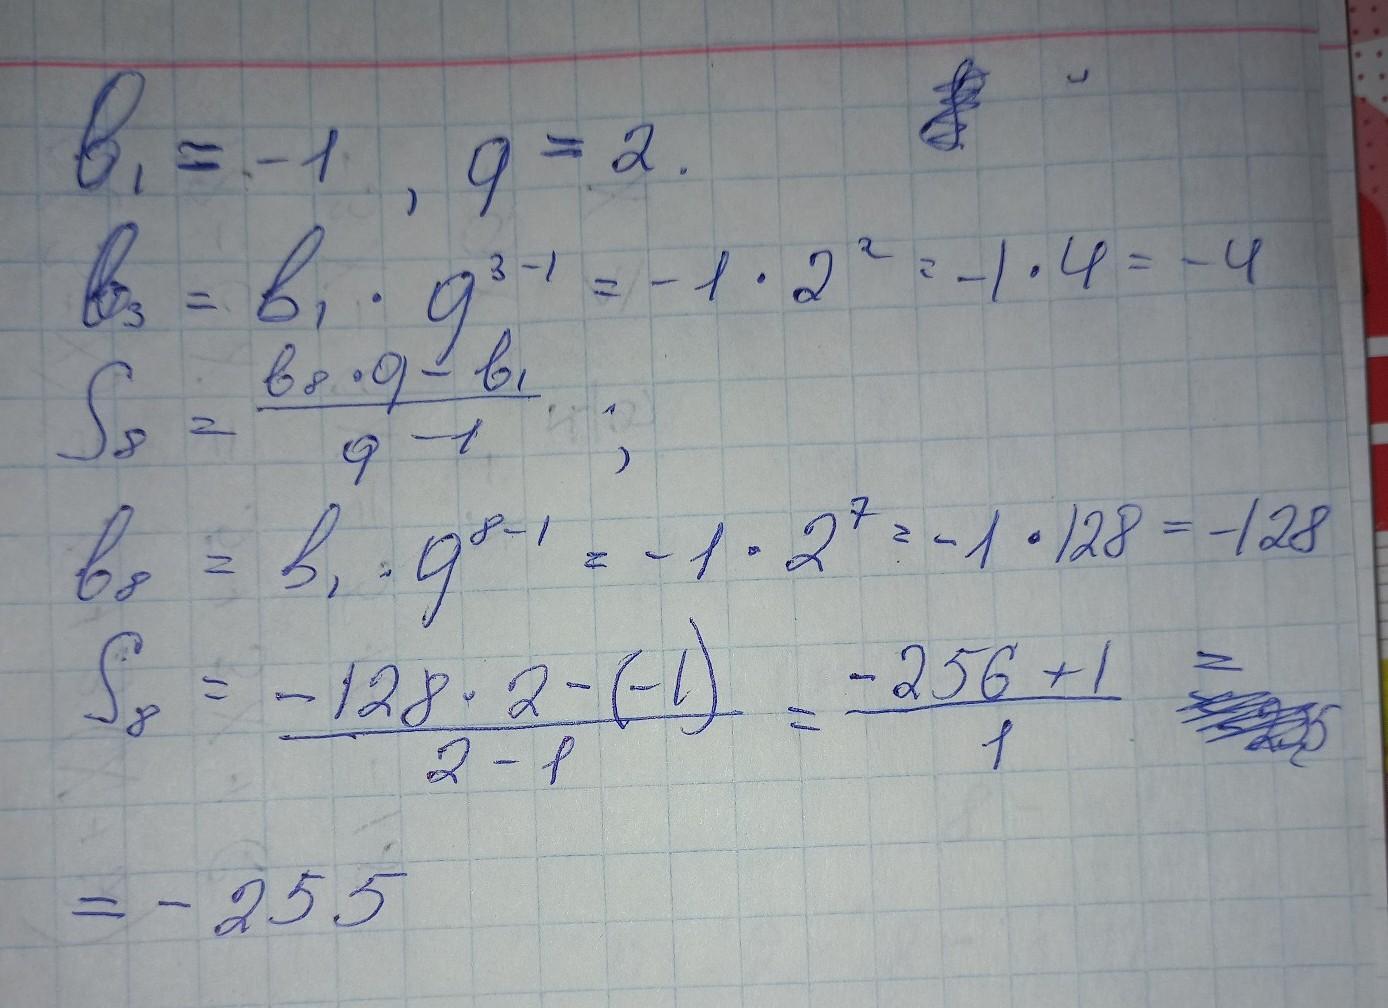 b₁ = -1, q = 2.
b₃ = b₁ · q³⁻¹ = -1 · 2² = -1 · 4 = -4
S₈ = (b₈ · q - b₁) / (q - 1) ;
b₈ = b₁ · q⁸⁻¹ = -1 · 2⁷ = -1 · 128 = -128
S₈ = (-128 · 2 - (-1)) / (2 - 1) = (-256 + 1) / 1 =
= -255